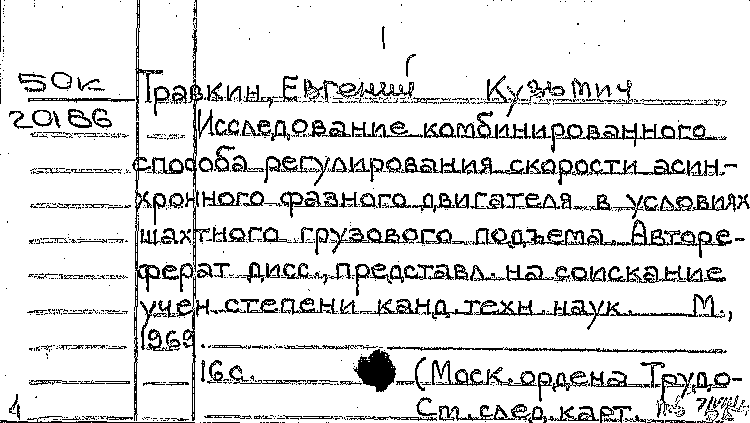 50к Травкин, Евгений Кузьмич
20186 Исследование комбинированного
способа регулирования скорости асин-
хронного фазного двигателя в условиях
шахтного грузового подъема. Авторе-
ферат дисс., представл. на соискание
учен. степени канд. техн. наук. М.,
1969.
16 с. (Моск. ордена Трудо-
См. след. карт.